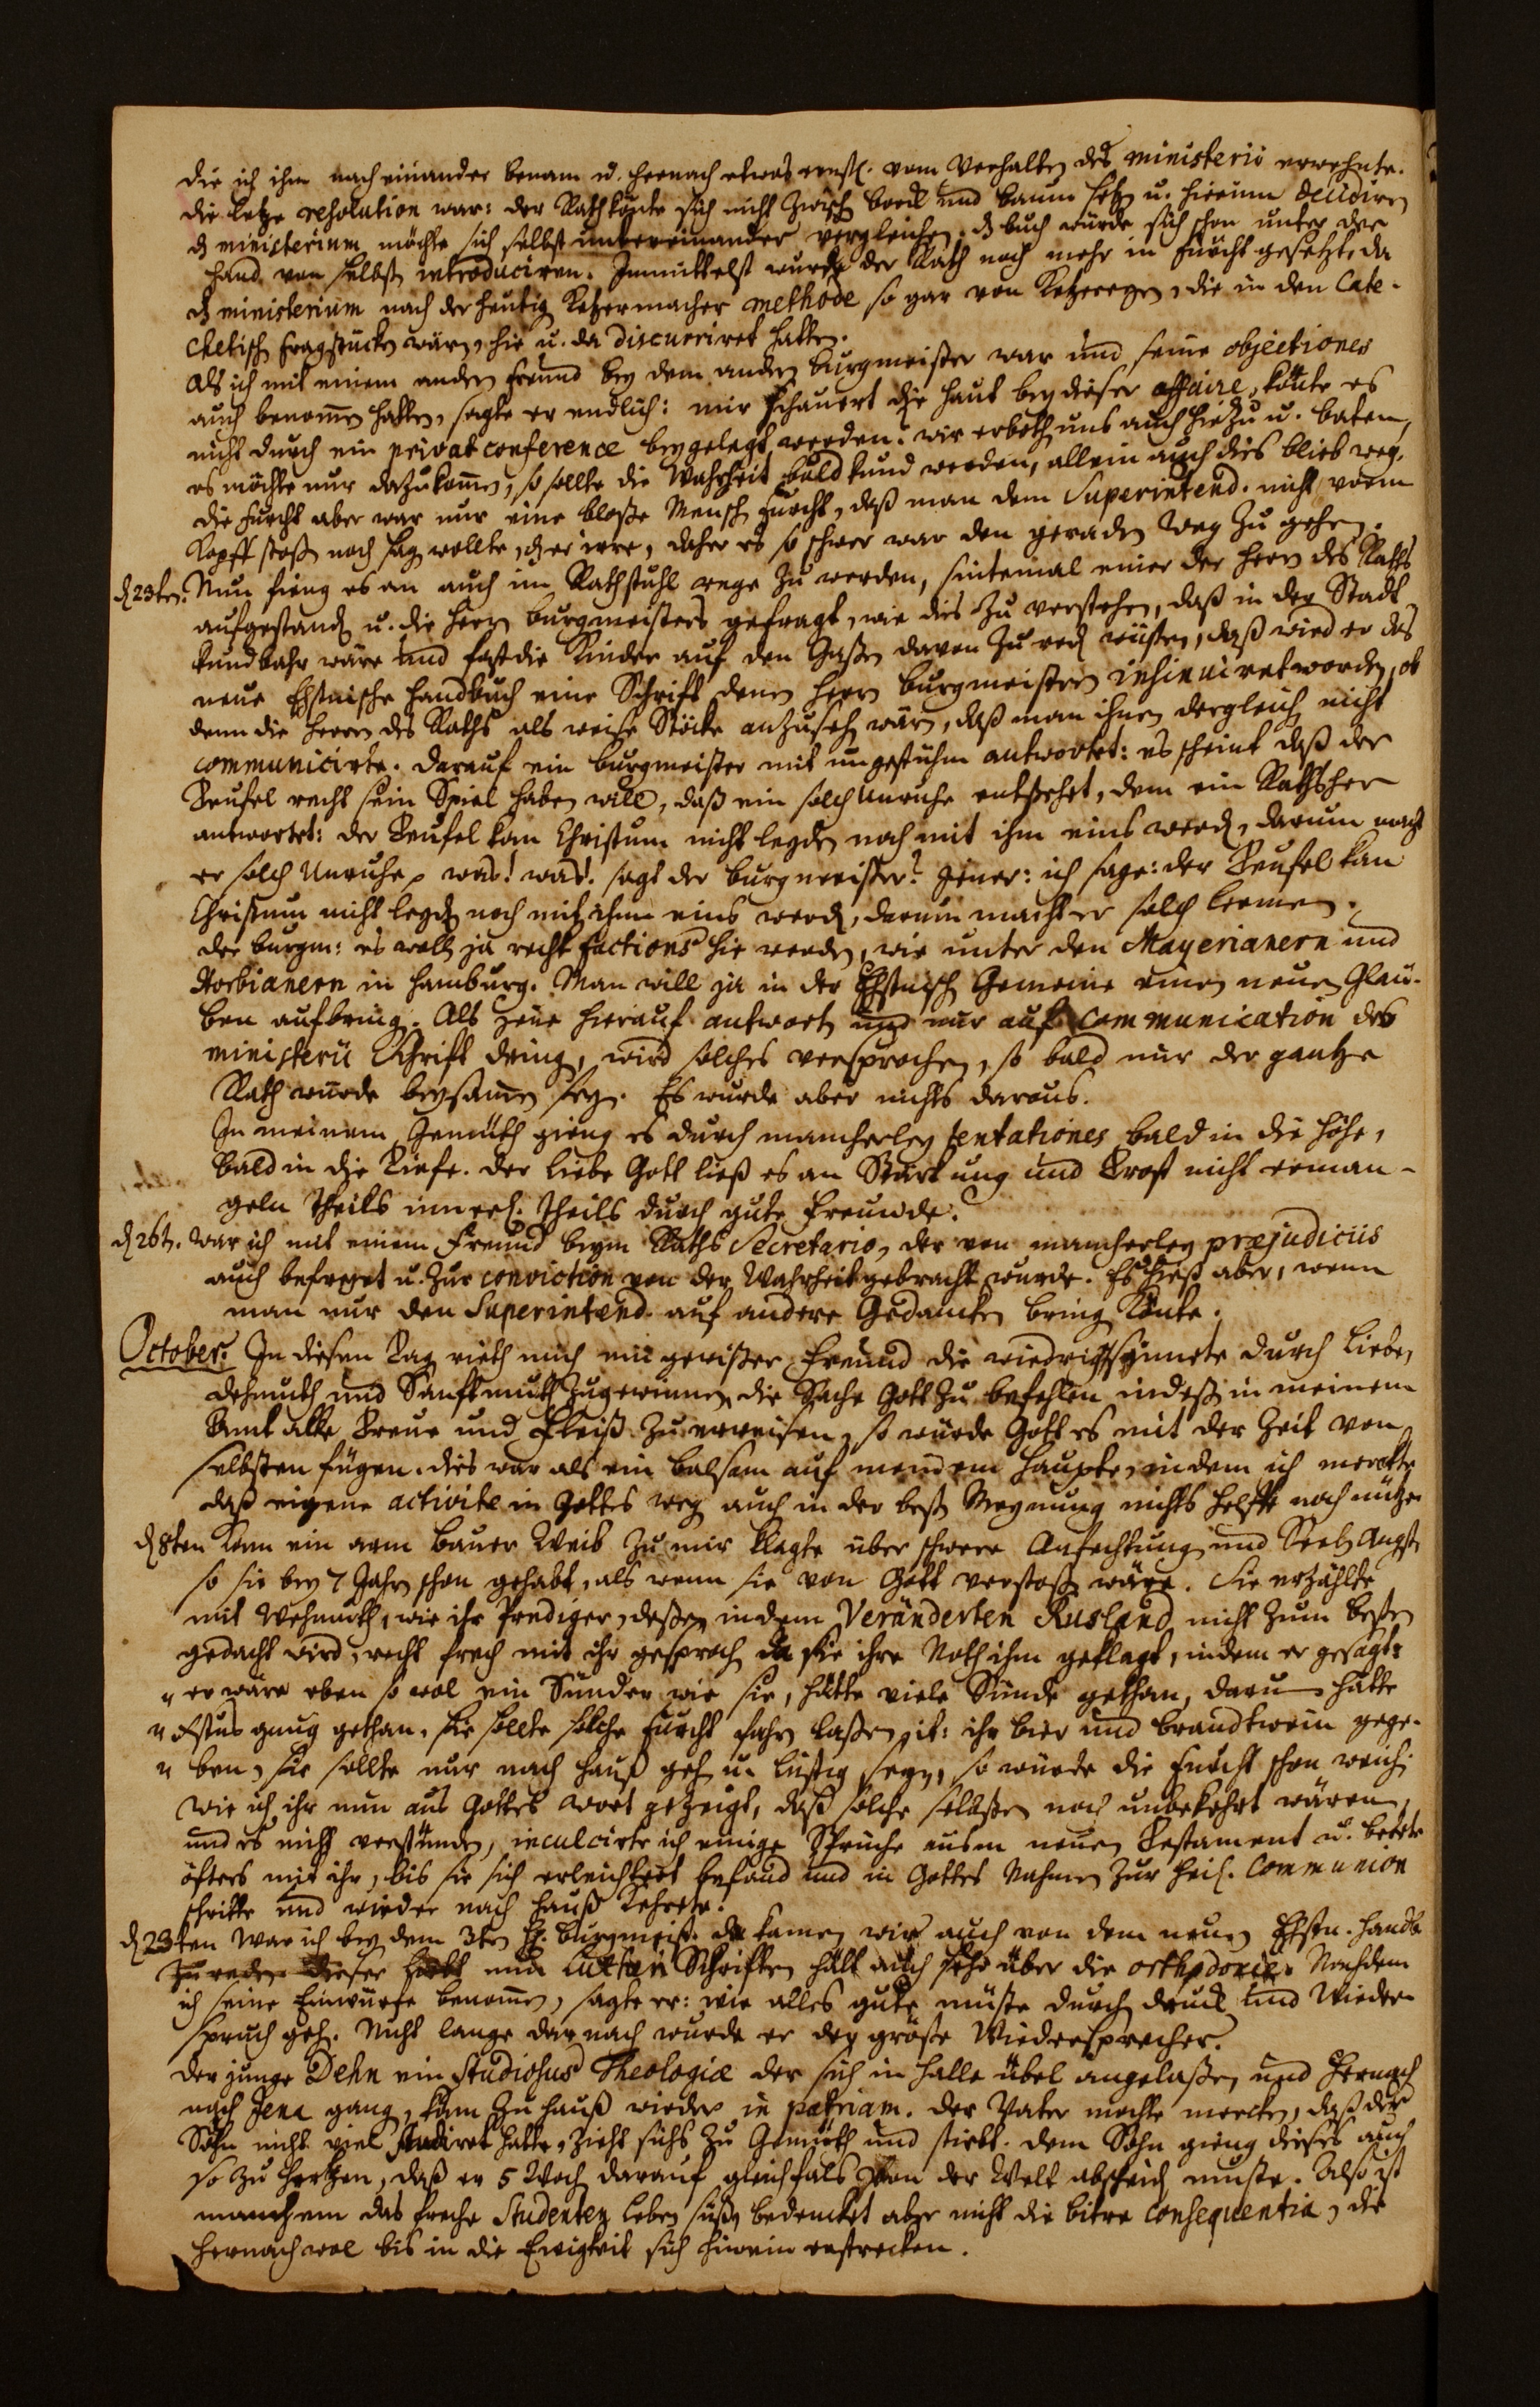 die ich ihm nach einander benam u. hernach etwas ernstl. vom Verhalten des ministerii erwehnte.
die letze resolution war: der Rath könte sich nicht zwisch borck und baum setzen u. hierinn decidiren
dz ministerium möchte sich selbst untereinander vergleichen. dz buch würde sich schon unter der
hand von selbst introduciren. Immittelst wurde der Rath noch mehr in Furcht gesetzt da
dz ministerium nach der heutig Ketzermacher methode so gar von Ketzereyen, die in den Cate-
chetisch fragstücken wären, hie u. da discurriret hatten.
Als ich mit einem andern Freund bey dem andern burgmeister war und seine objectiones
auch benommen hatten, sagte er endlich: mir schauert die haut bey dieser affaire, könte es
nicht durch ein privat conference beygelegt werden. wir erboth uns auch hiezu u. baten,
es möchte nur dazu kommen, so sollte die Wahrheit bald kund werden, allein auch dies blieb weg.
die Furcht aber war nur eine bloße Mensch Furcht, daß man dem Superintend. nicht vorm
Kopff stoß noch sag wollte, dz er irre, daher es so schwer war den geraden Weg zu gehen.
d 23ten. Nun fieng es an auch im Rathstuhl rege zu werden, sintemal einer der herrn des Raths
aufgestand u. die herrn burgmeisters gefragt, wie dies zu verstehen, daß in der Stadt
kundbahr wäre und fast die Kinder auf den Gaßen davon zu red wüsten, daß wied er das
neue Ehstnische Handbuch eine Schrift denen herrn burgmeistern insinuiret worden, ob
denn die herrn des Raths als weise Stöcke anzuseh wären, daß man ihnen dergleich nicht
communicirte. darauf ein burgmeister mit ungestühm antwortet: es scheint daß der
Teufel recht sein Spiel haben will, daß ein solch Unruhe entstehet, dem ein Rathsherr
antwortet: der Teufel kan Christum nicht leyden noch mit ihm eins werd, darum macht
er solch Unruhe, was! was! sagt der burgmeister? Jener: ich sage: der Teufel kan
Christum nicht leyd noch mit ihm eins werd, darum macht er solch lermen.
der burgm: es woll ja recht factions hie werden, wie unter den Mayerianern und
Horbianern in Hamburg. Man will ja in der Ehstnisch Gemeine einen neuen Glau-
ben aufbring. Als Jener hierauf antwort und nur auf Communication des
ministerii Schrift dring, wird solches versprochen, so bald nur der gantze
Rath wurde beysamen seyn. Es wurde aber nichts daraus.
In meinem Gemüth gieng es durch mancherley tentationes bald in die höhe,
bald in die Tiefe. der liebe Gott ließ es an Stärkung und Trost nicht erman-
geln theils innerl. theils durch gute Freunde.
d 26t. war ich mit einem Freund beym Raths Secretario, der von mancherley præjudiciis
auch befreyet u. zur conviction von der Wahrheit gebracht wurde. Es hieß aber, wenn
man nur den Superintend. auf andere Gedancken bring könte.
October. In diesen Tag rieth mich ein gewißer Freund die wiedrig gesinnete durch Liebe,
dehmuth und Sanftmuth zugewinnen, die Sache Gott zu befehlen indeß in meinem
Amt alle Treue und Fleiß zu erweisen, so würde Gott es mit der Zeit von
selbsten fügen. dies war als ein balsam auf meinem Haupte, indem ich merckte
daß eigene activite in Gottes weg auch in der best Meynung nichts helffe noch nütze
d 8ten Kam ein arm Bauer Weib zu mir klagte über schwere Anfechtung und Seelen Angst
so sie bey 7 Jahr schon gehabt, als wenn sie von Gott verstoß wäre. Sie erzählte
mit Wehmuth, wie ihr Prediger, deßen in dem Veränderten Rusland nicht zum besten
gedacht wird, recht frech mit ihr gesproch da sie ihre Noth ihm geklagt, indem er gesagt:
" er wäre eben so wol ein Sünder wie sie, hätte viele Sünde gethan, darum hätte
" Xstus gnug gethan. sie sollte solche Furcht fahren laßen, it: ihr bier und brandtwein gege-
" ben, sie sollte nur nach hauß geh u. lustig seyn, so würde die Furcht schon weich.
Wie ich ihr nun aus Gottes wort gezeigt, daß solche selbsten noch unbekehrt wären,
und es nicht verstünden, inculcirte ich einige Sprüche ausm neuen Testament u. betete
öfters mit ihr, bis sie sich erleichtert befand und in Gottes Nahmen zur heil. Communion
schritte und wieder nach Hauß kehrete.
d 23ten War ich bey dem 3ten H. Burgmeist. da kamen wir auch von dem neuen Ehstn. Handb.
zu reden. dieser hertt nun Lutheri Schriften hält auch sehr über die orthodoxie. Nachdem
ich seine Einwürfe benommen, sagte er: wie alles gute müste durch druck und Wieder-
spruch geh. Nicht lange darnach wurde er der größte Wiedersprecher.
der junge Dehn ein Studiosus Theologiæ der sich in Halle übel angelaßen und hernach
nach Jena gang, kam zu hauß wieder in patriam. der Vater mochte mercken, daß der
Sohn nicht viel studiret hatte, zieht sichs zu Gemüth und stirbt. dem Sohn gieng dieses auch
so zu Hertzen, daß er 5 Woch darauf gleichfals von der Welt abscheid muste. Also ist
manchem das freche Studenten leben süß, bedencket aber nicht die bittre Consequentia, die
hernach wol bis in die Ewigkeit sich hinein erstrecken.